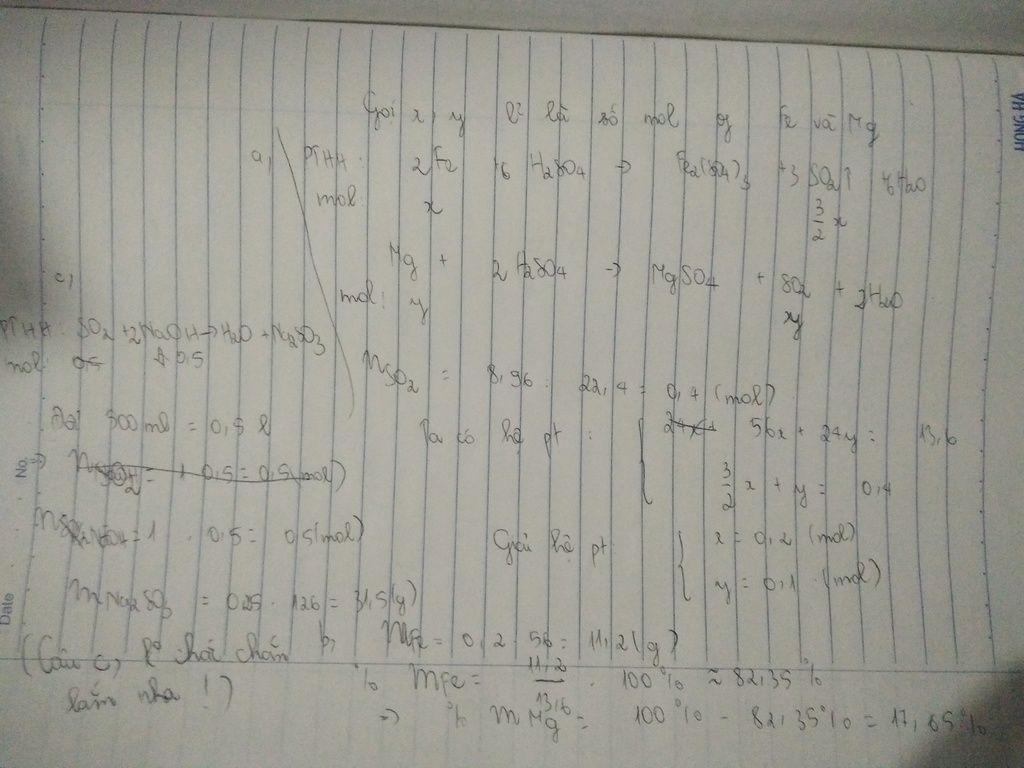 Gọi x, y ll là số mol of Fe và Mg
a, PTHH: 2Fe + 6 H2SO4 → Fe2(SO4)3 + 3 SO2↑ + 6H2O
mol: x 3/2 x
Mg + 2 H2SO4 → MgSO4 + SO2 + 2H2O
mol: y y
nSO2 = 8,96 : 22,4 = 0,4 (mol)
Ta có hệ pt: 56x + 24y = 13,6
3/2 x + y = 0,4
Giải hệ pt: x = 0,2 (mol)
y = 0,1 (mol)
b, mFe = 0,2 . 56 = 11,2 (g)
% mFe = 11,2/13,6 . 100 % ≈ 82,35 %
=> % mMg = 100 % - 82,35 % = 17,65 %
c,
PTHH: SO2 + 2NaOH → H2O + Na2SO3
mol: 0,5
Đổi 500 ml = 0,5 l
NaOH = 1 . 0,5 = 0,5 (mol)
mNa2SO3 = 0,25 . 126 = 31,5 (g)
(Câu c, chắc chắn
lắm nha !)
No.
Date